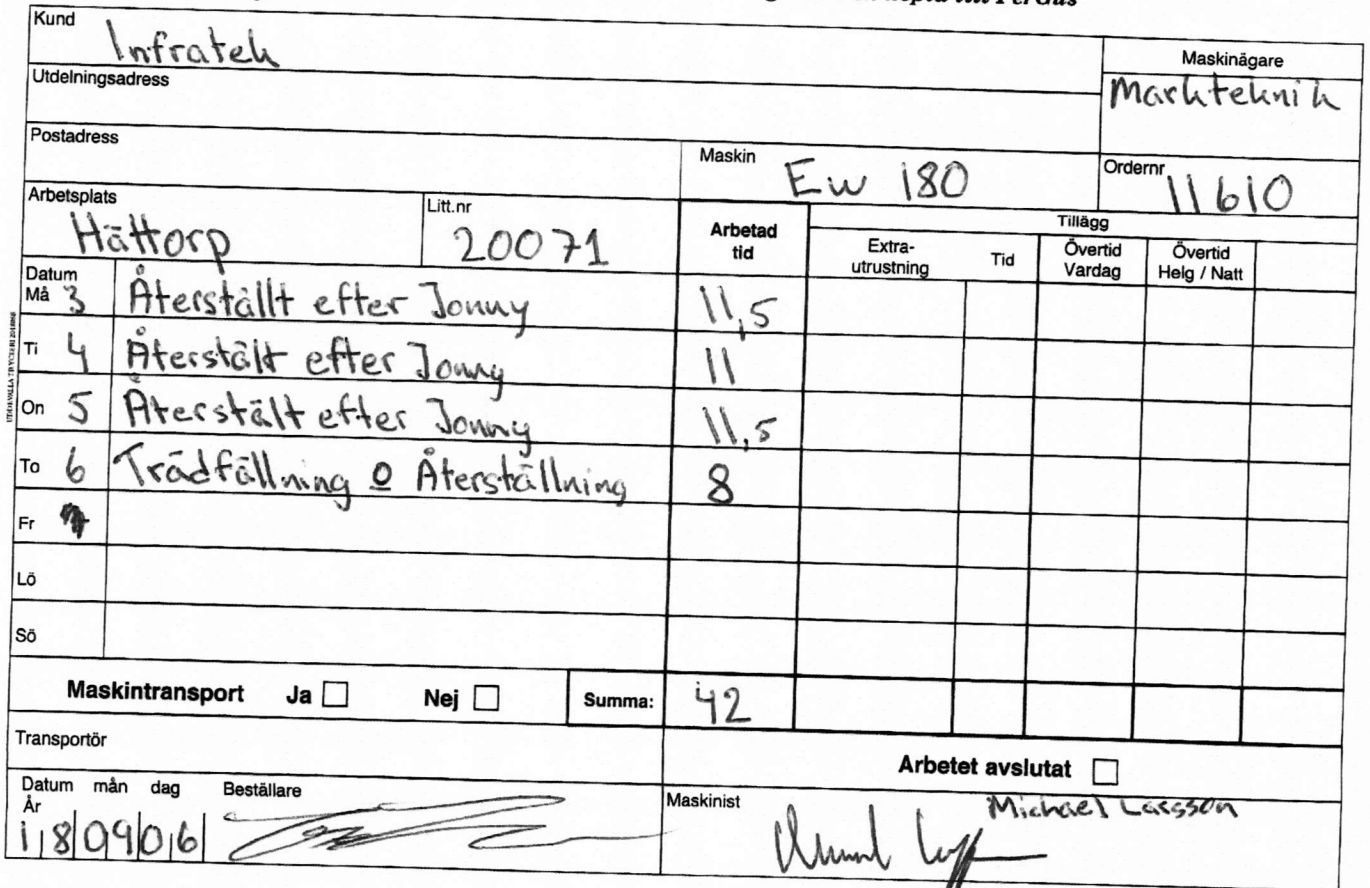 till PerGus
Kund
Infratek
Maskinägare
Markteknik
Utdelningsadress
Postadress
Maskin
EW 180
Ordernr
11610
Arbetsplats
Hättorp
Litt.nr
20071
Arbetad tid
Tillägg
Extra-utrustning
Tid
Övertid Vardag
Övertid Helg / Natt
Datum
Må 3 Återställt efter Jonny 11,5
Ti 4 Återstält efter Jonny 11
On 5 Återstält efter Jonny 11,5
To 6 Trädfällning o Återställning 8
Fr
Lö
Sö
Maskintransport Ja Nej Summa: 42
Transportör
Arbetet avslutat
Datum mån dag
År
18 09 06
Beställare
Maskinist
Michael Larsson